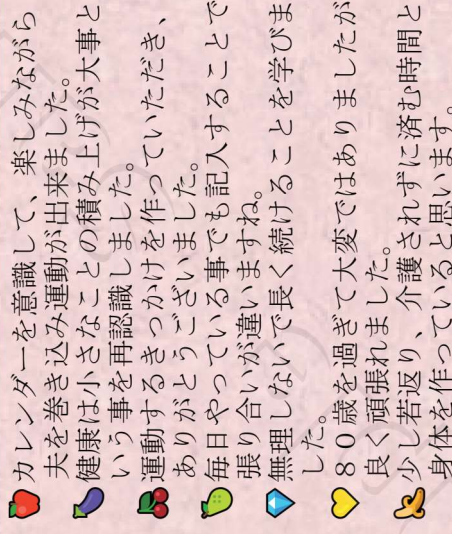 カレンダーを意識して、楽しみながら
夫を巻き込み運動が出来ました。
健康は小さなことの積み上げが大事と
いう事を再認識しました。
運動するきっかけを作っていただき、
ありがとうございました。
毎日やっている事でも記入することで
張り合いが違いますね。
無理しないで長く続けることを学びま
した。
８０歳を過ぎて大変ではありましたが
良く頑張れました。
少し若返り、介護されずに済む時間と
身体を作っていると思います。